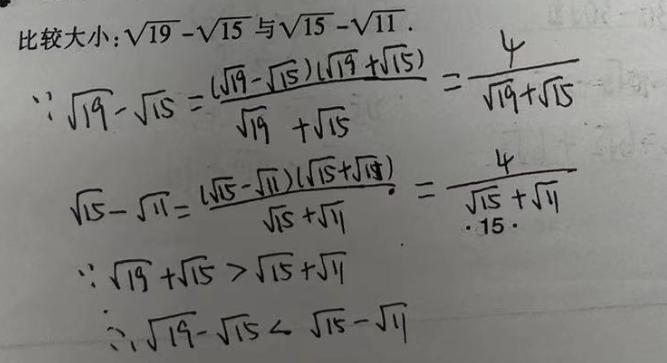 比较大小:√19-√15 与√15-√11.
∵ √19-√15 = (√19-√15)(√19+√15)/(√19+√15) = 4/(√19+√15)
√15-√11 = (√15-√11)(√15+√11)/(√15+√11) = 4/(√15+√11)
·15·
∵ √19+√15 > √15+√11
∴ √19-√15 < √15-√11